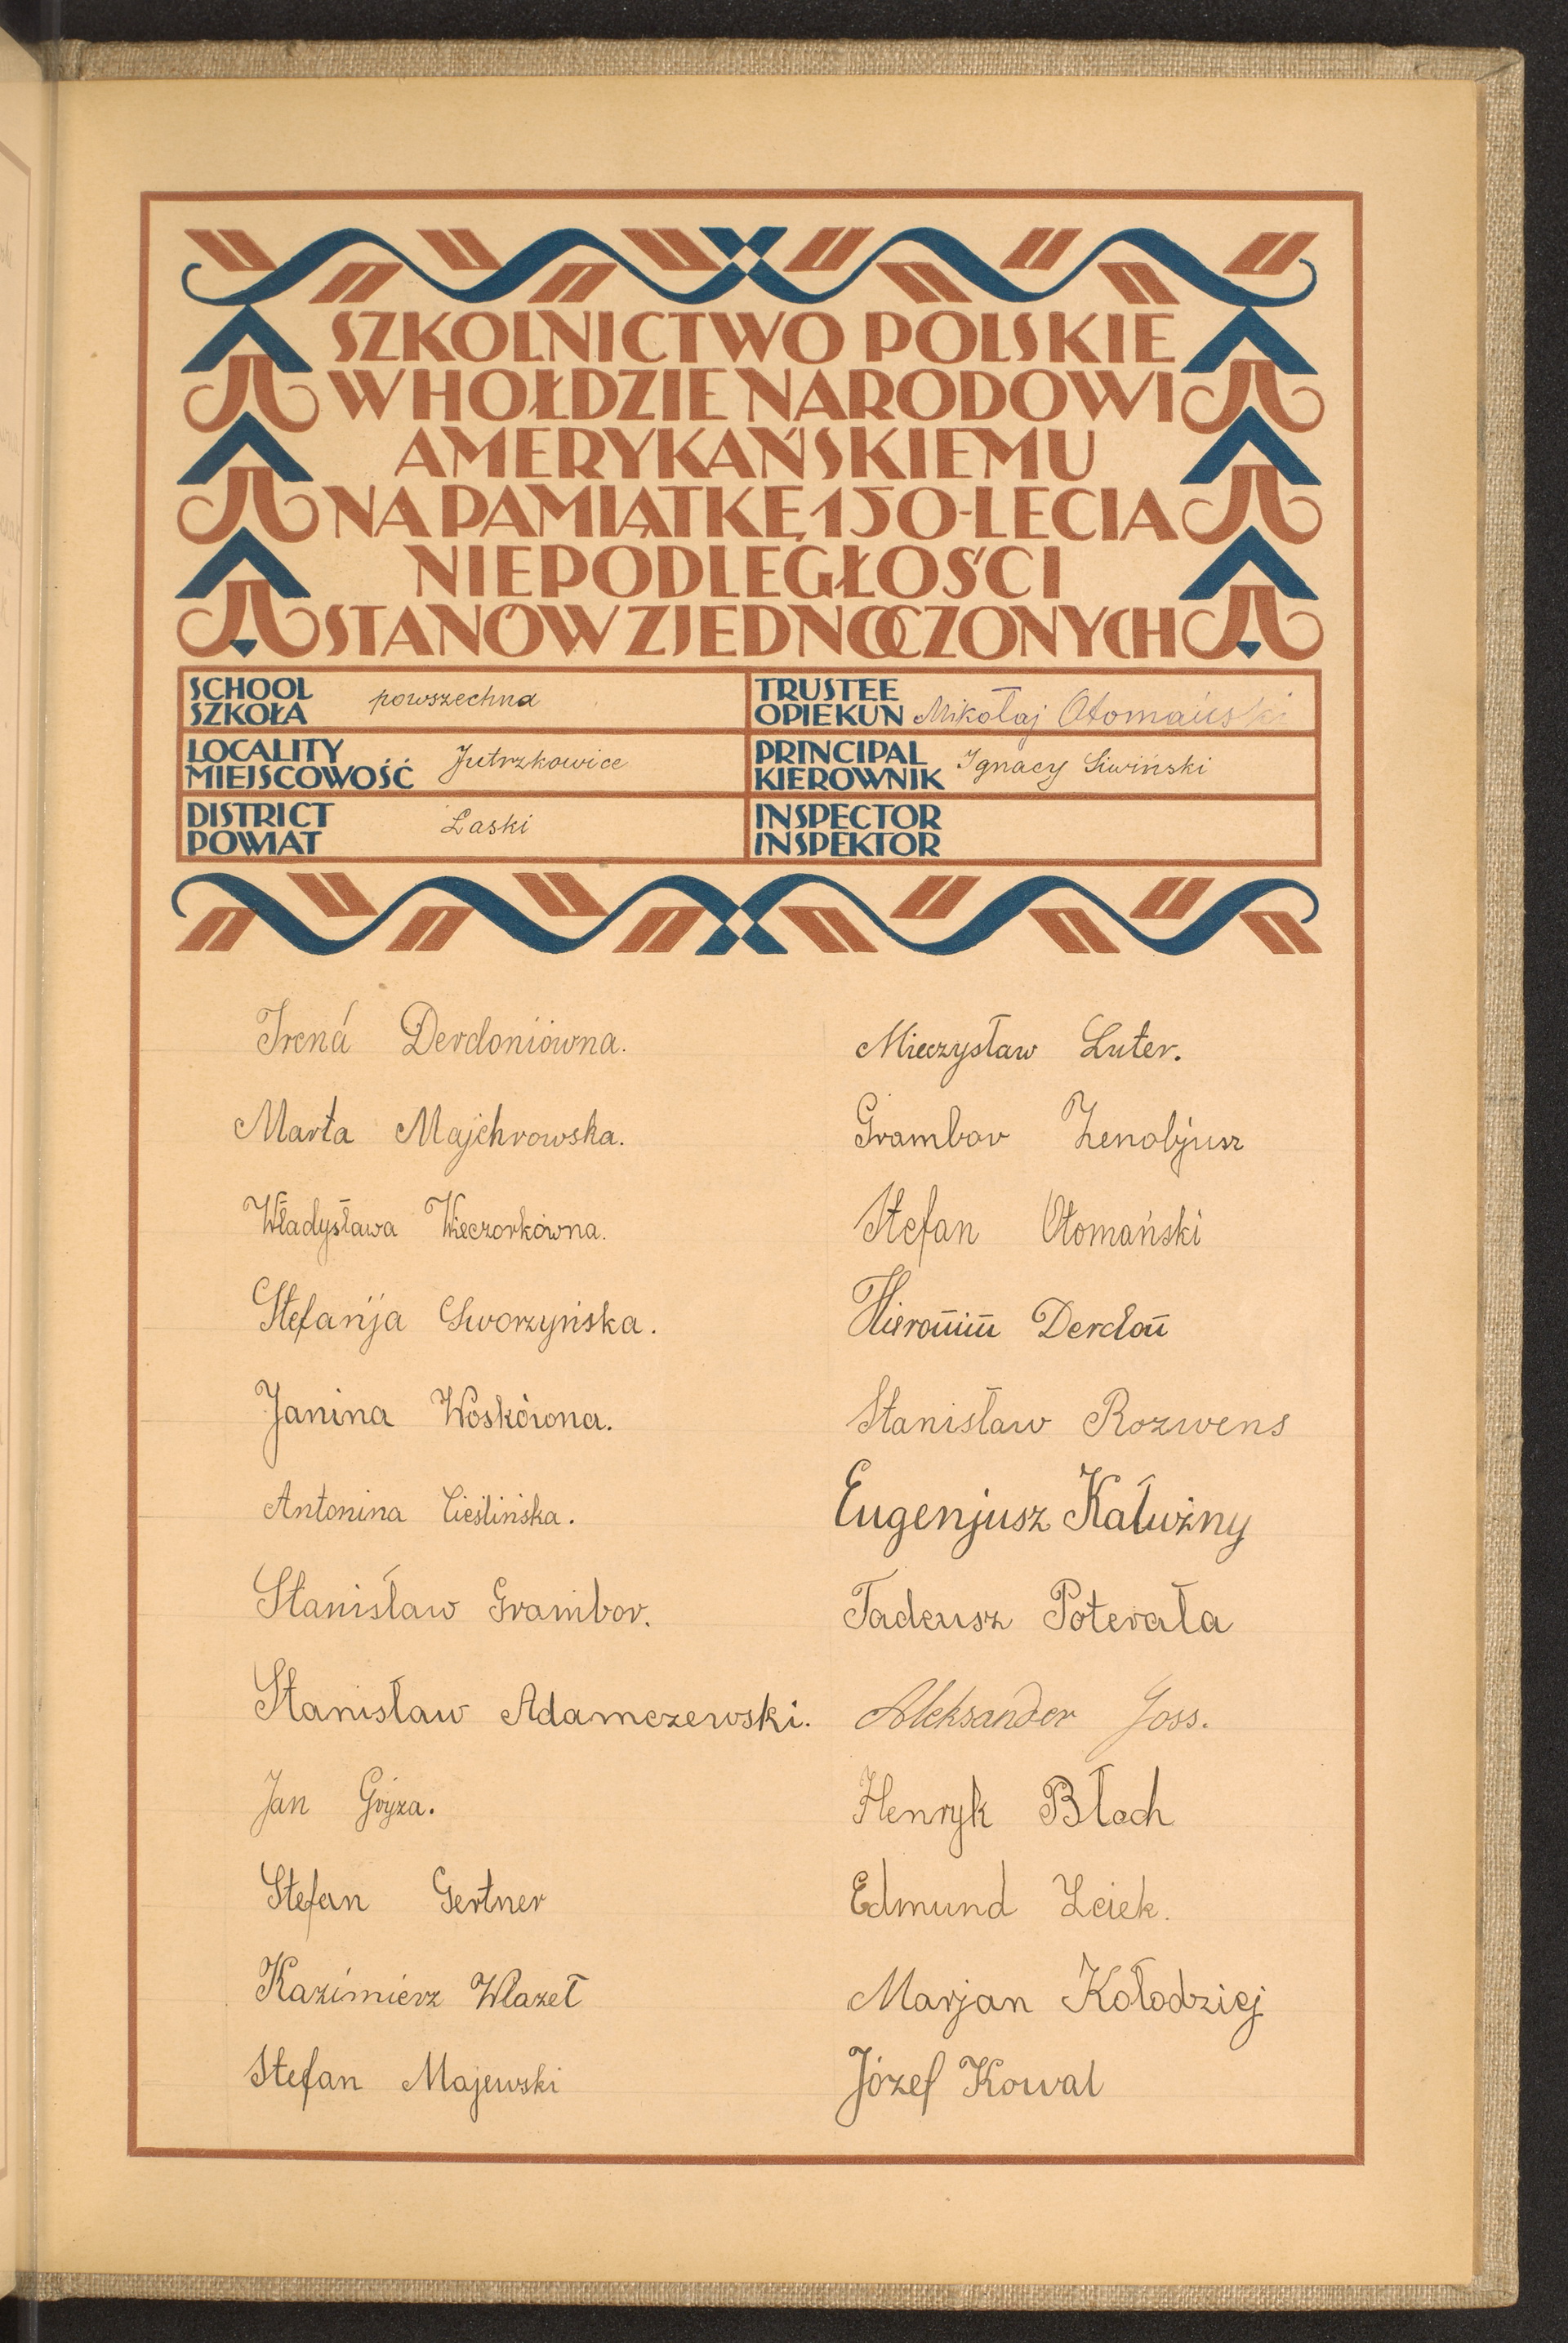 SZKOLNICTWO POLSKIE
W HOŁDZIE NARODOWI
AMERYKAŃSKIEMU
NA PAMIĄTKĘ 150-LECIA
NIEPODLEGŁOŚCI
STANÓW ZJEDNOCZONYCH
SCHOOL
SZKOŁA powszechna
TRUSTEE
OPIEKUN Mikołaj Otomański
LOCALITY
MIEJSCOWOŚĆ Jutrzkowice
PRINCIPAL
KIEROWNIK Ignacy Siwiński
DISTRICT
POWIAT Łaski
INSPECTOR
INSPEKTOR
Irena Derdoniówna.
Marta Majchrowska.
Władysława Wieczorkówna.
Stefanja Sworzyńska.
Janina Woskówna.
Antonina Cieślińska.
Stanisław Grambor.
Stanisław Adamczewski.
Jan Gryza.
Stefan Gertner
Kazimierz Wlazeł
Stefan Majewski
Mieczysław Luter.
Grambor Zenobjusz
Stefan Otomański
Hieronim Derdoń
Stanisław Rozwens
Eugenjusz Kałużny
Tadeusz Poterała
Aleksander Joss.
Henryk Błoch
Edmund Zciek.
Marjan Kołodziej
Józef Kowal